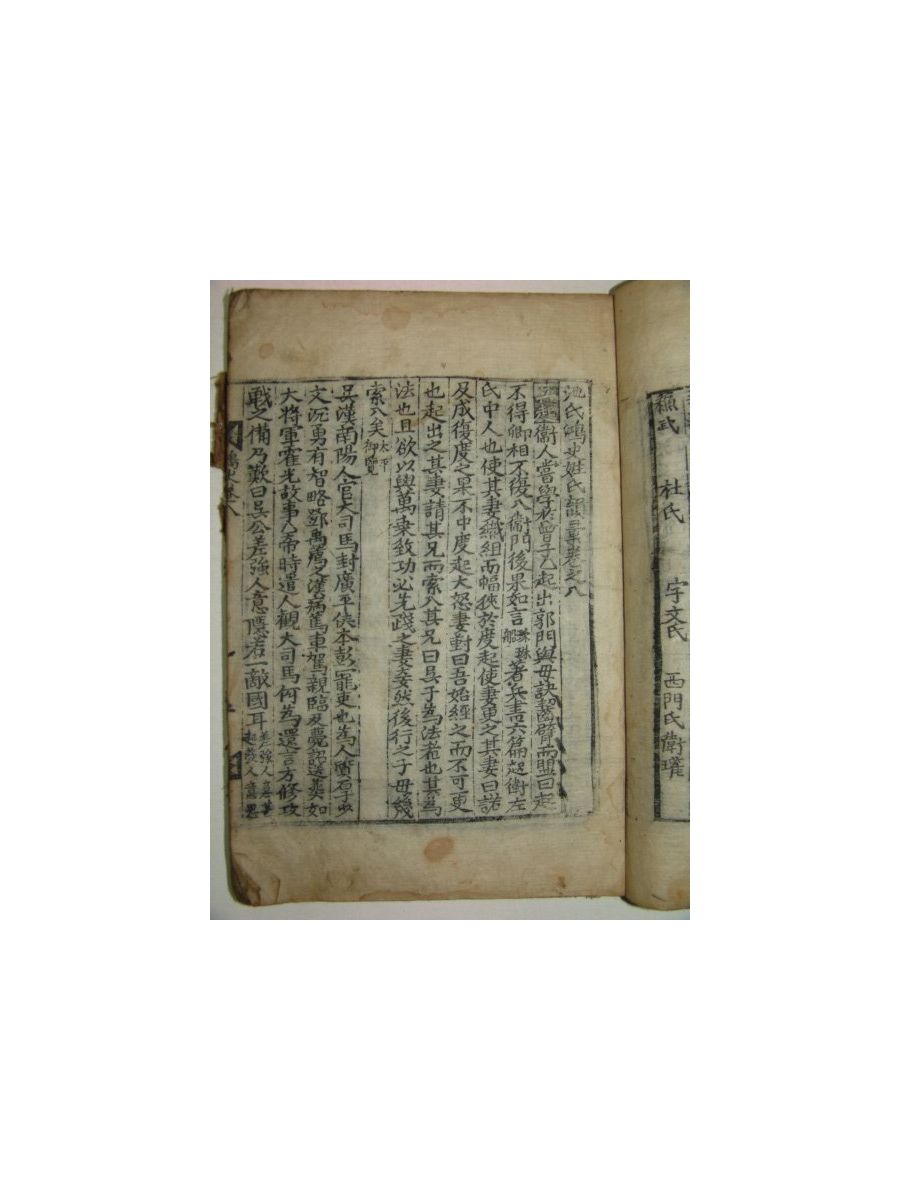 蘇氏 杜氏 宇文氏 西門氏 衛瓘
池氏鴻史姓氏類彙卷之八
吳起衛人嘗學於曾子乞起出郭門與母訣齧臂而盟曰起
不得卿相不復入衛門後果如言 著兵書六篇起衛左
氏中人也使其妻織組而幅狹於度起使妻更之其妻曰諾
及成復度之果不中度起大怒妻對曰吾始經之而不可更
也起出之其妻請其兄而索入其兄曰吳子為法者也其為
法也且欲以與萬乘致功必先踐之妻妾然後行之子毋幾
索入矣 太平御覽
吳漢南陽人官大司馬封廣平侯本彭寵吏也為人質厚少
文沉勇有智略鄧禹薦之漢病篤車駕親臨及薨詔送葬如
大將軍霍光故事 帝時遣人觀大司馬何為還言方修攻
戰之備乃歎曰吳公差強人意隱若一敵國耳 差強人意
鴻史卷八